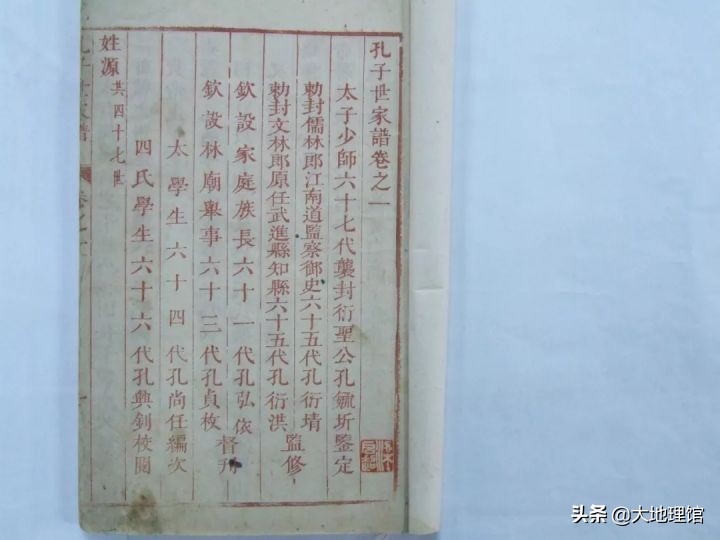 孔子世家譜卷之一
太子少師六十七代襲封衍聖公孔毓圻鑒定
勅封儒林郎江南道監察御史六十五代孔衍㙷
勅封文林郎原任武進縣知縣六十五代孔衍洪
監修
欽設家庭族長六十一代孔弘依
欽設林廟舉事六十三代孔貞枚
督刋
太學生六十四代孔尚任編次
四氏學生六十六代孔興釗校閱
姓源共四十七世
孔子世家譜
卷之一
頭条 @大地理馆